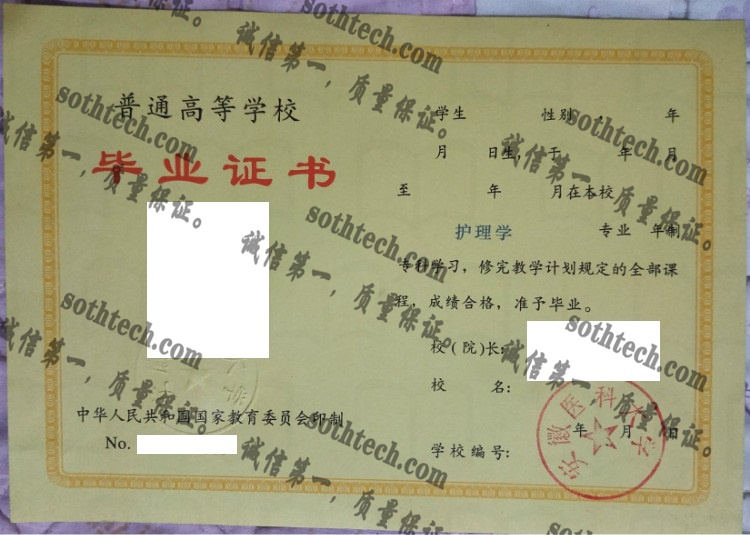 普通高等学校
毕业证书
中华人民共和国国家教育委员会印制
No.
学生 性别 . 年
月 日生,于 年 月
至 年 月在本校
护理学 专业 年制
专科学习,修完教学计划规定的全部课
程,成绩合格,准予毕业。
校(院)长:
校 名:
年 月 日
学校编号:
安徽医科大学
sothtech.com
诚信第一,质量保证。
sothtech.com
诚信第一,质量保证。
sothtech.com
诚信第一,质量保证。
sothtech.com
诚信第一,质量保证。
sothtech.com
诚信第一,质量保证。
sothtech.com
诚信第一,质量保证。
sothtech.com
诚信第一,质量保证。